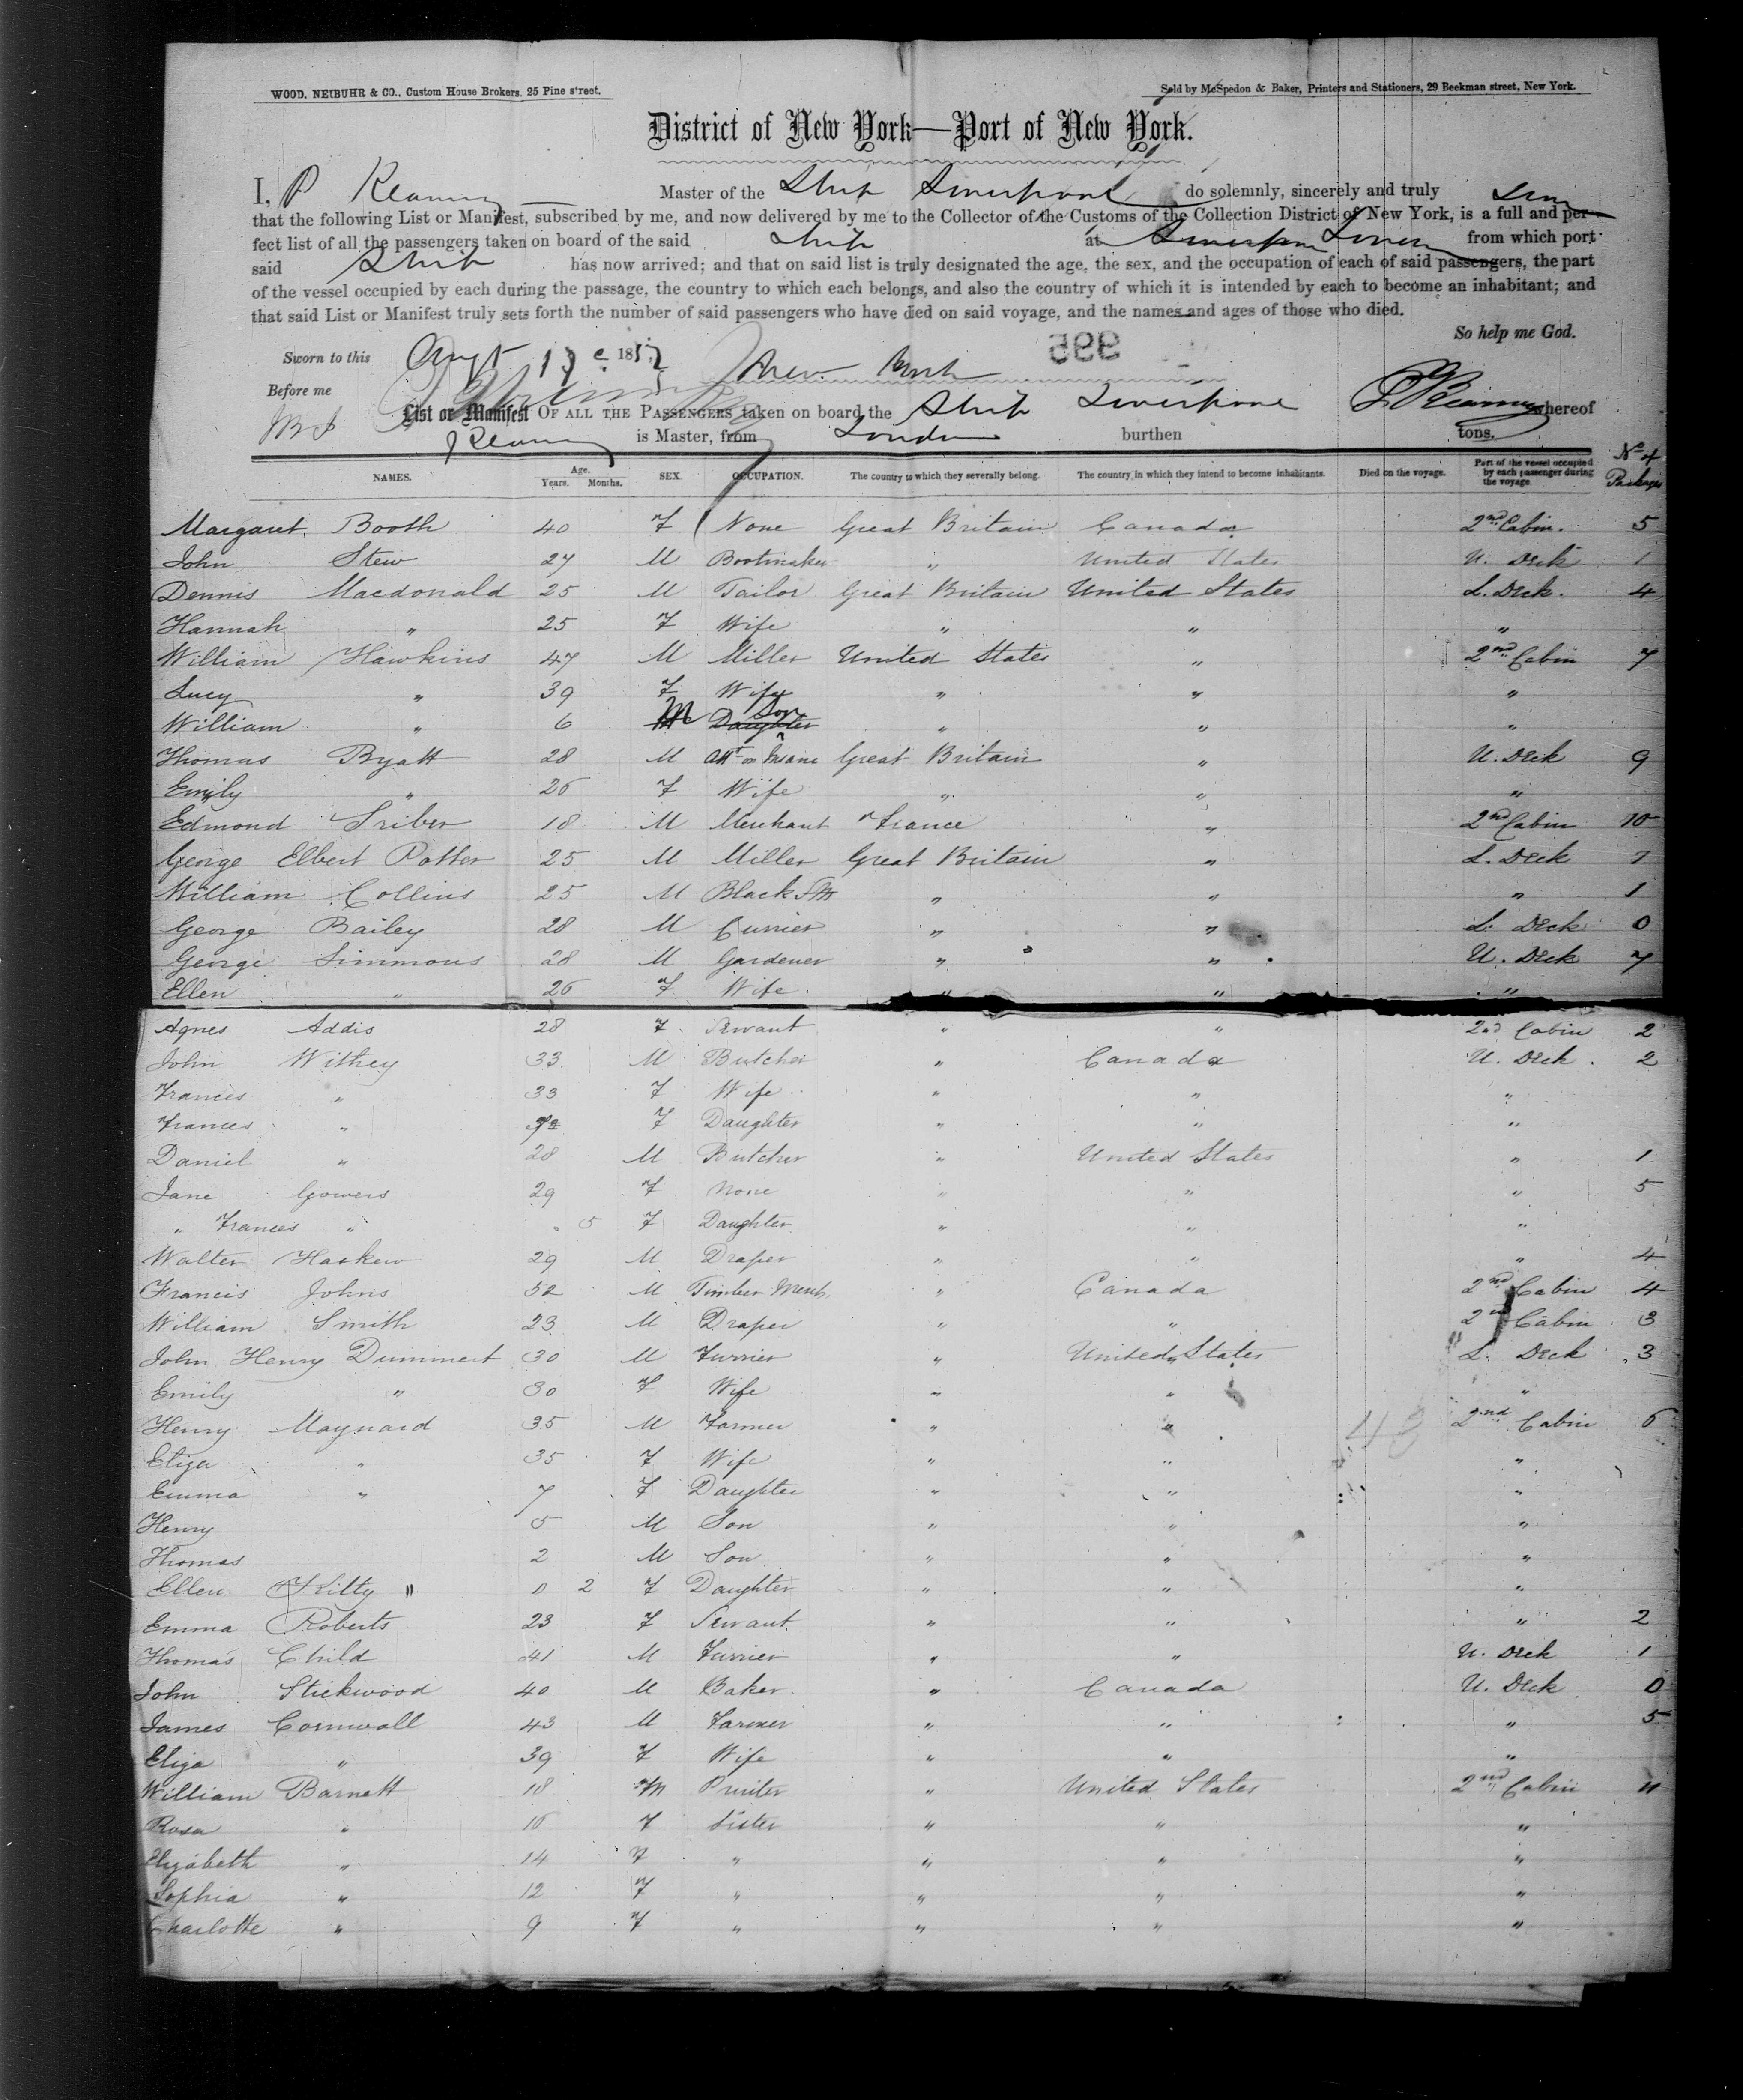 WOOD, NEIBUHR & CO., Custom House Brokers. 25 Pine street. Sold by McSpedon & Baker, Printers and Stationers, 29 Beekman street, New York.
District of New York—Port of New York.
I, P Kearney Master of the Ship Liverpool do solemnly, sincerely and truly
that the following List or Manifest, subscribed by me, and now delivered by me to the Collector of the Customs of the Collection District of New York, is a full and per-
fect list of all the passengers taken on board of the said Ship at London from which port
said Ship has now arrived; and that on said list is truly designated the age, the sex, and the occupation of each of said passengers, the part
of the vessel occupied by each during the passage, the country to which each belongs, and also the country of which it is intended by each to become an inhabitant; and
that said List or Manifest truly sets forth the number of said passengers who have died on said voyage, and the names and ages of those who died.
So help me God.
Sworn to this Augt 185 995
Before me P Kearney
List or Manifest OF ALL THE PASSENGERS taken on board the Ship Liverpool whereof
Kearney is Master, from London burthen tons.
NAMES. Age. Years. Months. SEX. OCCUPATION. The country to which they severally belong. The country in which they intend to become inhabitants. Died on the voyage. Part of the vessel occupied by each passenger during the voyage No of Packages
Margaret Booth 40 F None Great Britain Canada 2nd Cabin. 5
John Stew 27 M Bootmaker " United States U. Deck 1
Dennis Macdonald 25 M Tailor Great Britain United States L. Deck. 4
Hannah " 25 F Wife " " "
William Hawkins 47 M Miller United States " 2nd Cabin 7
Lucy " 39 F Wife " " "
William " 6 M Daughter Son " " "
Thomas Byatt 28 M Great Britain " U. Deck 9
Emily " 26 F Wife " " "
Edmond Sriber 18 M Merchant France " 2nd Cabin 10
George Elbert Potter 25 M Miller Great Britain " L. Deck
William Collins 25 M Black Sm " " " 1
George Bailey 28 M Currier " " L. Deck 0
George Simmons 28 M Gardener " " U. Deck 7
Ellen " 26 F Wife " " "
Agnes Addis 28 F Servant " " 2nd Cabin 2
John Withey 33 M Butcher " Canada U. Deck 2
Frances " 33 F Wife " " "
Frances " F Daughter " " "
Daniel " 28 M Butcher " United States " 1
Jane Gowers 29 F None " " " 5
" Frances " " 5 F Daughter " " "
Walter Haskew 29 M Draper " " " 4
Francis Johns 52 M Timber Merch. " Canada 2nd Cabin 4
William Smith 23 M Draper " " 2nd Cabin 3
John Henry Dummert 30 M Furrier " United States L. Deck 3
Emily " 30 F Wife " " "
Henry Maynard 35 M Farmer " " 43 2nd Cabin 6
Eliza " 35 F Wife " " "
Emma " 7 F Daughter " " "
Henry 5 M Son " " "
Thomas 2 M Son " " "
Ellen Kitty " 0 2 F Daughter " " "
Emma Roberts 23 F Servant " " " 2
Thomas Child 41 M Furrier " " U. Deck 1
John Stickwood 40 M Baker " Canada U. Deck 0
James Cornwall 43 M Farmer " " " 5
Eliza " 39 F Wife " " "
William Barnett 18 M Printer " United States 2nd Cabin 11
Rosa " 16 F Sister " " "
Elizabeth " 14 F " " " "
Sophia " 12 F " " " "
Charlotte " 9 F " " " "